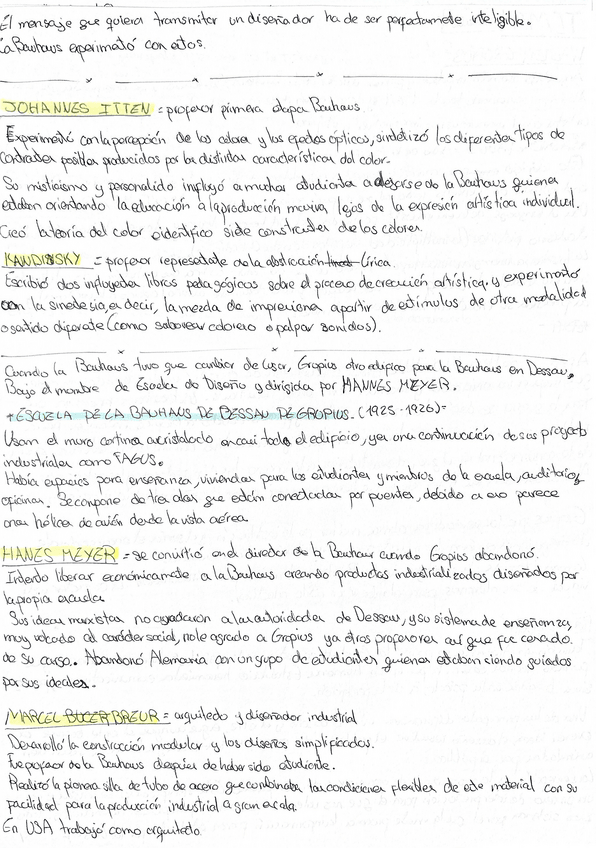 El mensaje que quiera transmitir un diseñador ha de ser perfectamente inteligible.
La Bauhaus experimentó con estos.
JOHANNES ITTEN = profesor primera etapa Bauhaus
Experimentó con la percepción de los colores y los efectos ópticos, sintetizó los diferentes tipos de
contrastes posibles producidos por las distintas características del color.
Su misticismo y personalidad influyó a muchos estudiantes a alejarse de la Bauhaus quienes
estaban orientando la educación a la producción masiva, lejos de la expresión artística individual.
Creó la teoría del color científico siete contrastes de los colores.
KANDINSKY = profesor representante de la abstracción lírica.
Escribió dos influyentes libros pedagógicos sobre el proceso de creación artística y experimentó
con la sinestesia, es decir, la mezcla de impresiones a partir de estímulos de otra modalidad
o sentido diferente (como saborear colores o palpar sonidos).
Cuando la Bauhaus tuvo que cambiar de lugar, Gropius otro edificio para la Bauhaus en Dessau,
Bajo el nombre de Escuela de Diseño y dirigida por HANNES MEYER.
+ ESCUELA DE LA BAUHAUS DE DESSAU DE GROPIUS. (1925-1926)=
Usam el muro cortina acristalado en casi todo el edificio, y es una continuación de sus proyects
industriales como FAGUS.
Había espacios para enseñanza, viviendas para los estudiantes y miembros de la escuela, auditorios y
oficinas. Se compone de tres alas que están conectadas por puentes, debido a eso parece
una hélice de avión desde la vista aérea.
HANES MEYER = se convirtió en el director de la Bauhaus cuando Gropius abandonó.
Intentó liberar económicamente a la Bauhaus creando productos industrializados diseñados por
la propia escuela
Sus ideas marxistas no agradaron a las autoridades de Dessau, y su sistema de enseñanza,
muy votado al carácter social, no le agradó a Gropius y a otros profesores así que fue cesado
de su cargo. Abandonó Alemania con un grupo de estudiantes quienes estaban siendo guiados
por sus ideales.
MARCEL BREUR = arquitecto y diseñador industrial
Desarrolló la construcción modular y los diseños simplificados.
Fue profesor de la Bauhaus después de haber sido estudiante.
Realizó la pionera silla de tubo de acero que combinaba las condiciones flexibles de este material con su
facilidad para la producción industrial a gran escala.
En USA trabajó como arquitecto.